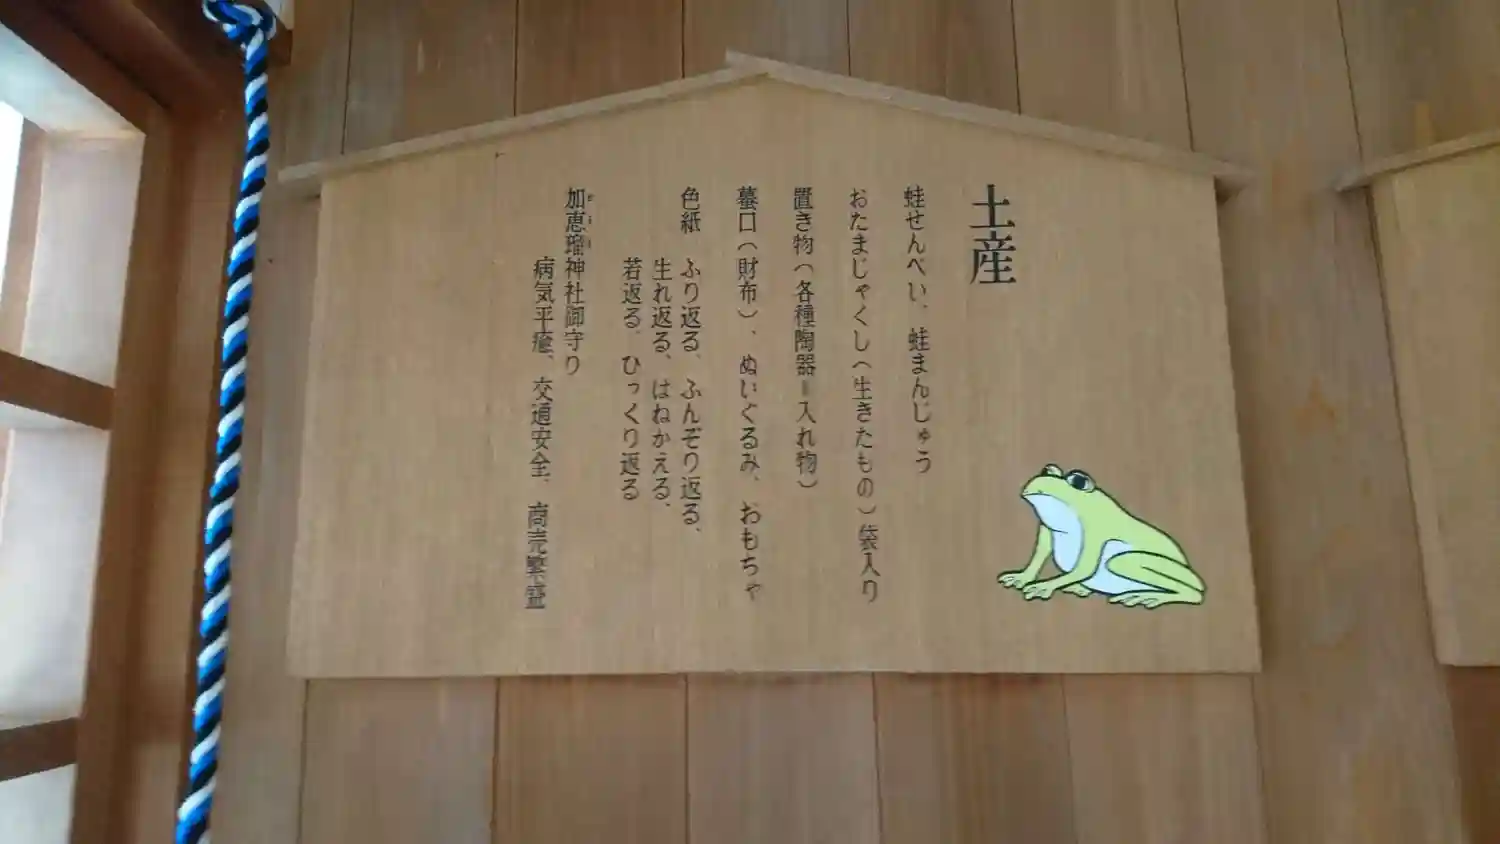 土産
蛙せんべい、蛙まんじゅう
おたまじゃくし(生きたもの)袋入り
置き物(各種陶器=入れ物)
蟇口(財布)、ぬいぐるみ、おもちゃ
色紙　ふり返る、ふんぞり返る、
生れ返る、はねかえる、
若返る、ひっくり返る
加恵瑠神社御守り
病気平癒、交通安全、商売繁盛